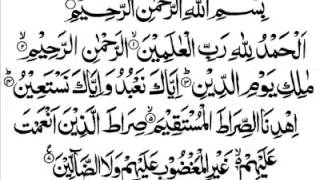 بِسْمِ اللهِ الرَّحْمٰنِ الرَّحِيْمِ
اَلْحَمْدُ لِلهِ رَبِّ الْعٰلَمِيْنَ ۙ۱ الرَّحْمٰنِ الرَّحِيْمِ ۙ۲
مٰلِكِ يَوْمِ الدِّيْنِ ۗ۳ اِيَّاكَ نَعْبُدُ وَاِيَّاكَ نَسْتَعِيْنُ ۗ۴
اِهْدِنَا الصِّرَاطَ الْمُسْتَقِيْمَ ۙ۵ صِرَاطَ الَّذِيْنَ اَنْعَمْتَ
عَلَيْهِمْ ۙ۶ غَيْرِ الْمَغْضُوْبِ عَلَيْهِمْ وَلَا الضَّآلِّيْنَ ۷